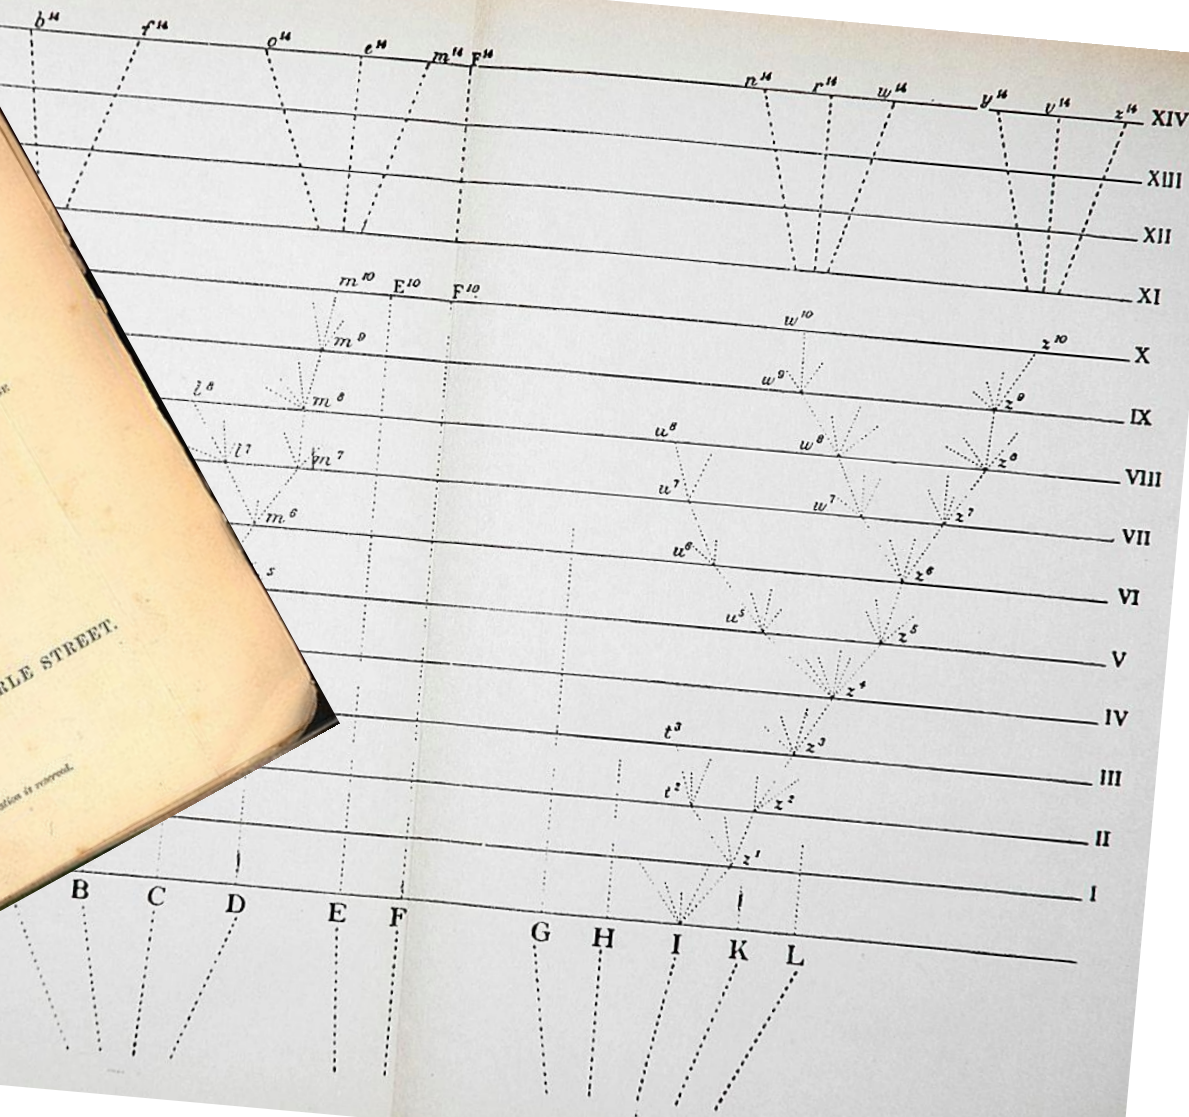 b¹⁴ f¹⁴ o¹⁴ e¹⁴ m¹⁴ F¹⁴ n¹⁴ r¹⁴ w¹⁴ y¹⁴ v¹⁴ z¹⁴ XIV
XIII
XII
XI
m¹⁰ E¹⁰ F¹⁰ w¹⁰ z¹⁰ X
m⁹ w⁹ z⁹ IX
l⁸ m⁸ u⁸ w⁸ z⁸ VIII
l⁷ m⁷ u⁷ w⁷ z⁷ VII
m⁶ u⁶ z⁶ VI
⁵ u⁵ z⁵ V
z⁴ IV
t³ z³ III
t² z² II
z¹ I
B C D E F G H I K L
RLE STREET.
ation is reserved.